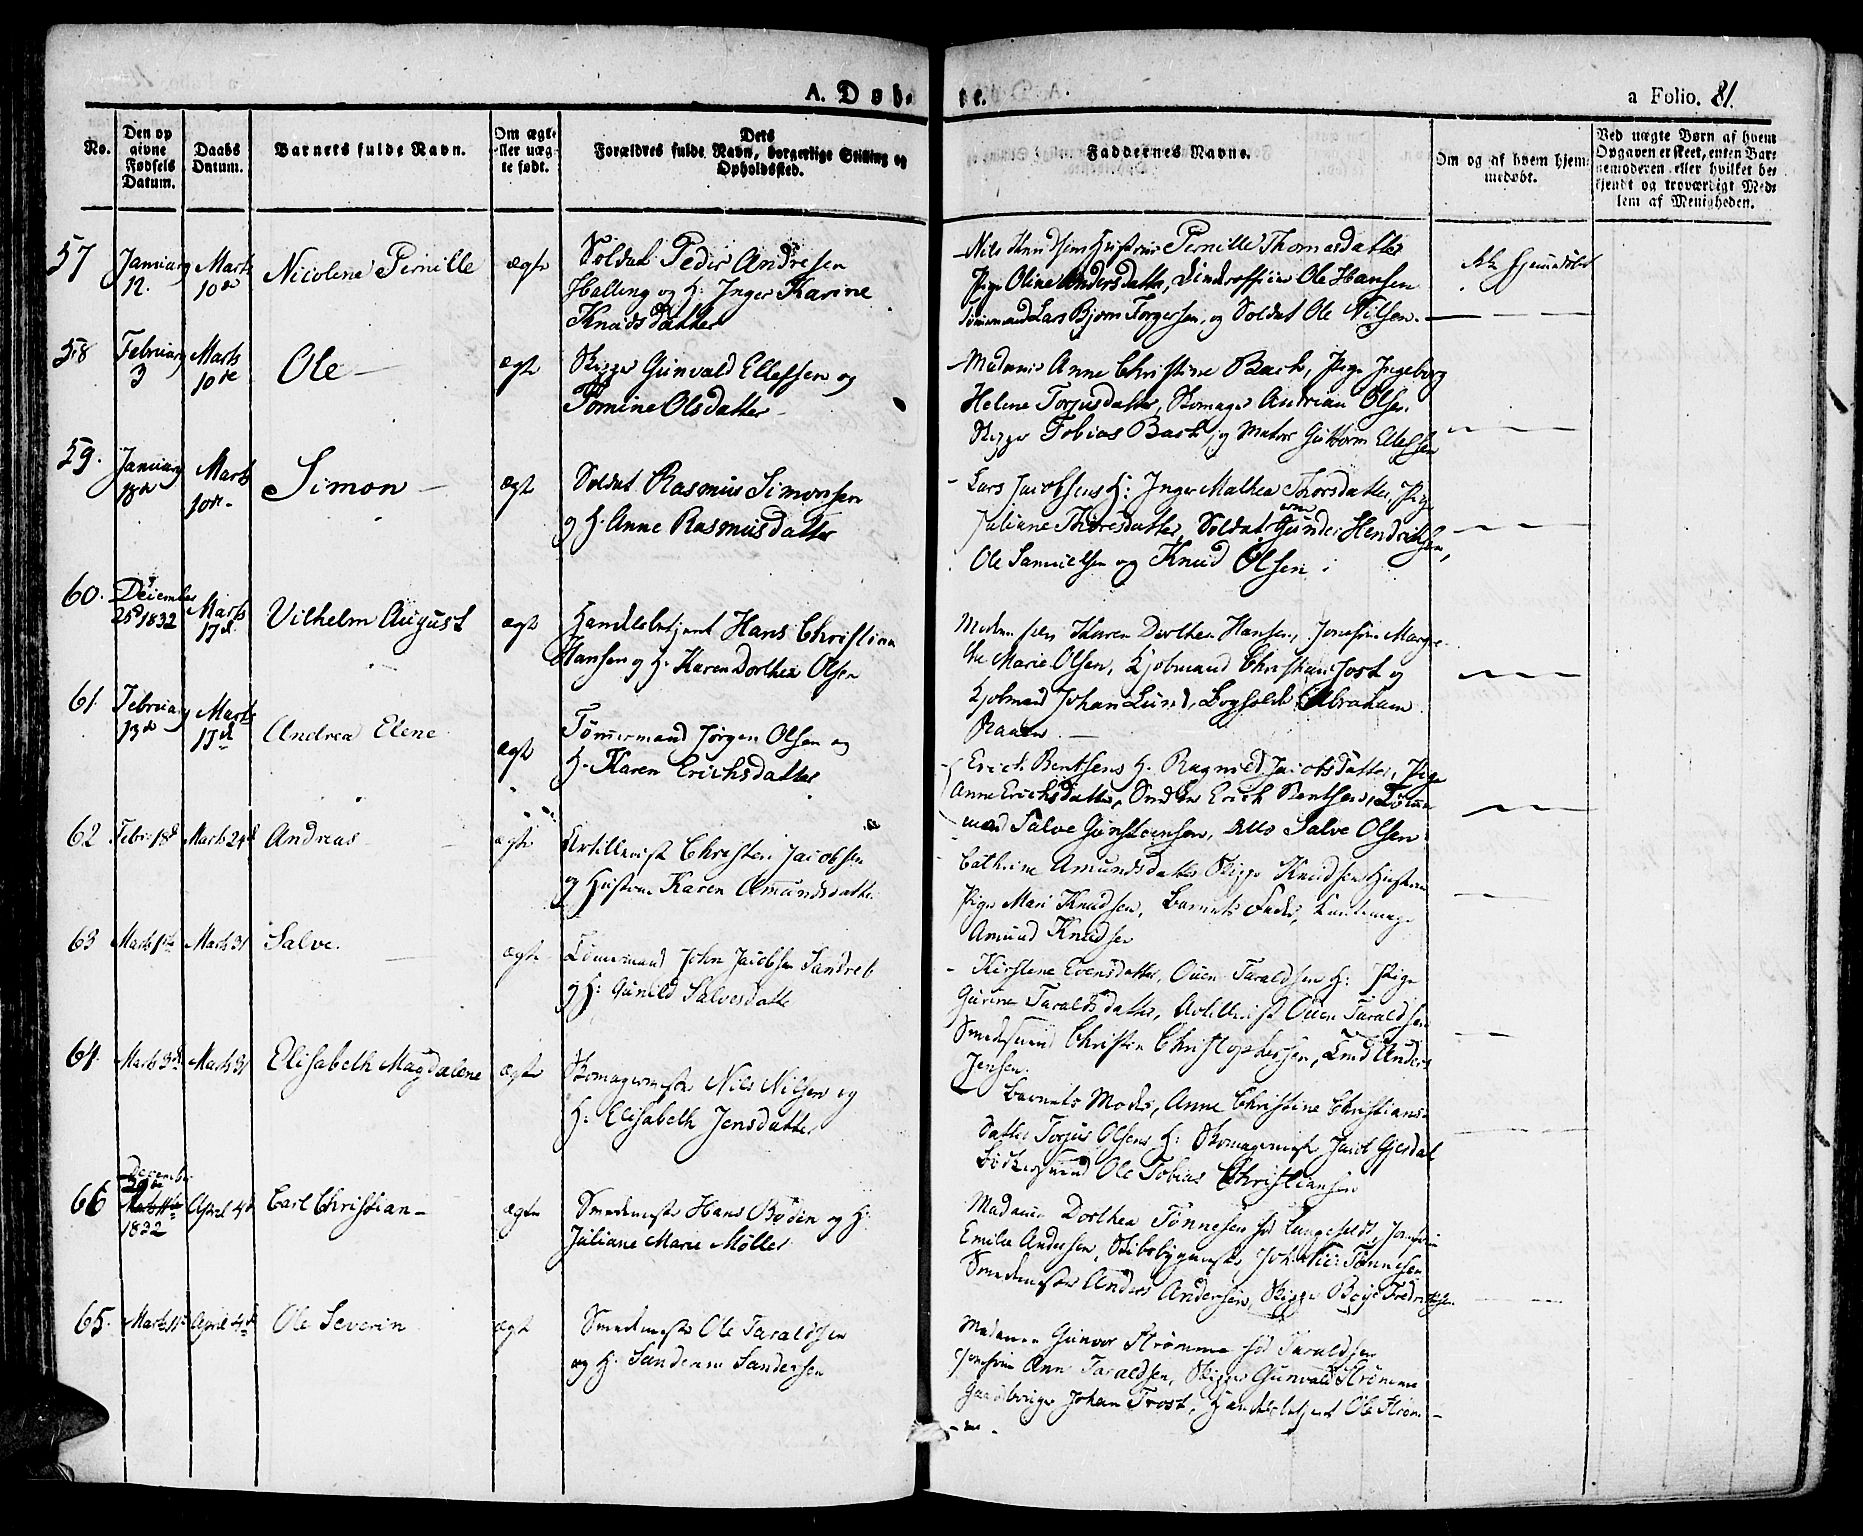 A. Døbte.
a Folio. 81.
No.
Den op
givne
Fødsels
Datum.
Daabs
Datum.
Barnets fulde Navn.
Om ægte
eller uæg-
te født.
Dets
Forældres fulde Navn, borgerlige Stilling og
Opholdssted.
Faddernes Navne.
Om og af hvem hjem-
medøbt.
Ved uægte Børn af hvem
Opgaven er skeet, enten Bar-
nemoderen eller hvilket be-
kjendt og troværdigt Med-
lem af Menigheden.
57
January
12.
Marts
10de
Nicolene Pernille
ægte
Soldat Peder Andresen
Halling og H: Inger Karine
Knudsdatter
Nils Knudsens Hustrue Pernille Thomasdatter
Pige Oline Andersdatter, Ole Hansen
Tømermand Lars Bjørn Torgersen, og Soldat Ole Nilsen.
Ikke hjemmedøbt
58
February
3
Marts
10de
Ole
ægte
Skipper Gunvald Ellefsen og
Tomine Olsdatter
Madame Anne Christine Bach, Pige Ingeborg
Helene Torjusdatter, Skomager Andrian Olsen
Skipper Tobias Bach, og Matros Guttorm Ellefsen
59.
January
18de
Marts
10de
Simon
ægte
Soldat Rasmus Simonsen
og H. Anne Rasmusdatter
Lars Jacobsens H: Inger Mathea Thorsdatter, Pige
Juliane Thoresdatter, Soldat Gunder Hendriksen,
Ole Samuelsen og Knud Olsen
60.
December
25de 1832
Marts
17de
Vilhelm August
ægte
Handelsbetjent Hans Christian
Hansen og H. Karen Dorthea Olsen
Madam Karen Dorthea Hansen, Jomfrue Margre-
the Marie Olsen, Kjøbmand Christian Jost og
Kjøbmand Johan Lund, Abraham
Raaen
61.
February
13de
Marts
17de
Andrea Elene
ægte
Tømmermand Jørgen Olsen og
H. Karen Erichsdatter
Erich Bentsens H. Ragnild Jacobsdatter, Pige
Anne Erichsdatter, Erich Bentsen, Tømer-
mand Salve Gunstensen, Salve Olsen
62
Febr: 18de
Marts 24de
Andreas
ægte
Artillerist Christen Jacobsen
og Hustrue Karen Amundsdatter
Cathrine Amundsdatter Skipper Knudsens Hustrue
Pige Mari Knudsen, Barnets Fader,
Amund Knudsen
63
Marts 1ste
Marts 31
Salve.
ægte
Tømermand John Jacobsen Sandreb
og H: Gunild Salvesdatter
Kirstene Evensdatter, Ouen Taraldsens H: Pige
Gurine Taraldsdatter, Artillerist Ouen Taraldsen
Smedsvend Christen Christophersen, Anders
Jensen.
64
Marts 3de
Marts 31
Elisabeth Magdalene
ægte
Skomagermester Nils Nilsen og
H: Elisabeth Jensdatter
Barnets Moder, Anne Christine Christians-
datter Torjus Olsens H: Skomagermester Jacob Gjerdal
Bødkersvend Ole Tobias Christiansen
66
December
1832
April 4de
Carl Christian
ægte
Smedemester Hans Boden og H:
Juliane Marie Møller
Madame Dorthea Tønnesen fød Langfeldt, Jomfrue
Emilie Andersen, Skibsbygmester Joh. Nic: Tønnesen
Smedemester Anders Andersen, Skipper Boye Fredrichsen
65.
Marts 11te
April 4de
Ole Severin
ægte
Smedemester Ole Taraldsen
og H. Sanderine Sandersen
Madame Gunvor Strømme fød Taraldsen
Jomfrue Ann Taraldsen, Skipper Gunvald Strømme
Gaardbruger Johan Trost, Handelsbetjent Ole Strøm-
me.